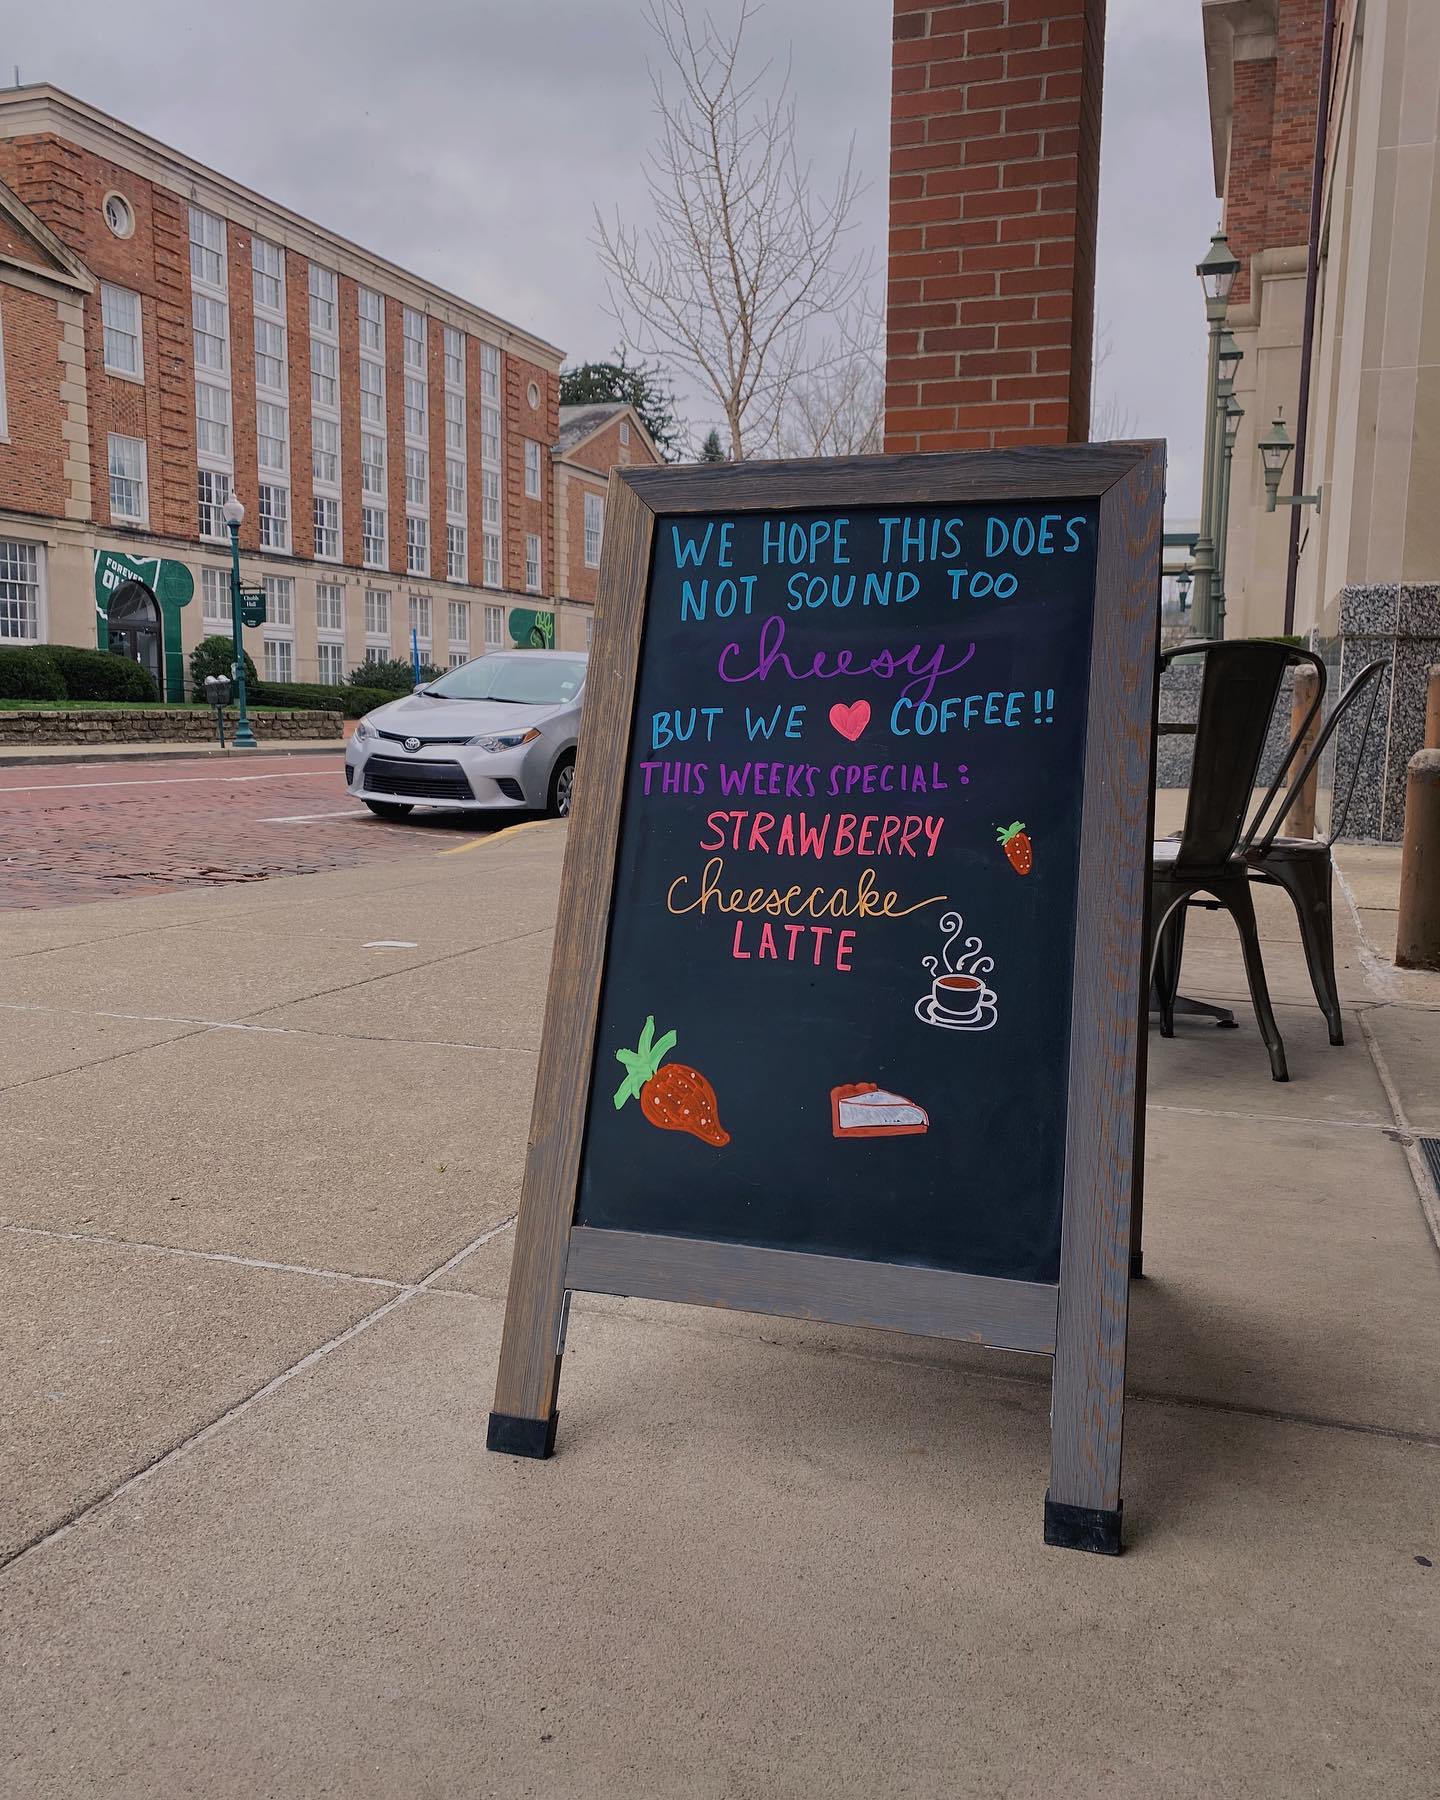 WE HOPE THIS DOES
NOT SOUND TOO
cheesy
BUT WE ❤ COFFEE!!
THIS WEEK'S SPECIAL:
STRAWBERRY
cheesecake
LATTE
FOREVER
Chubb
Hall
CHUBB HALL